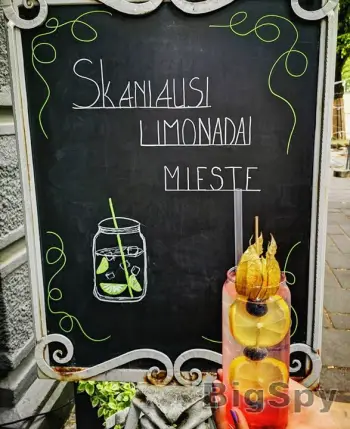 SKANIAUSI
LIMONADAI
MIESTE
BigSpy